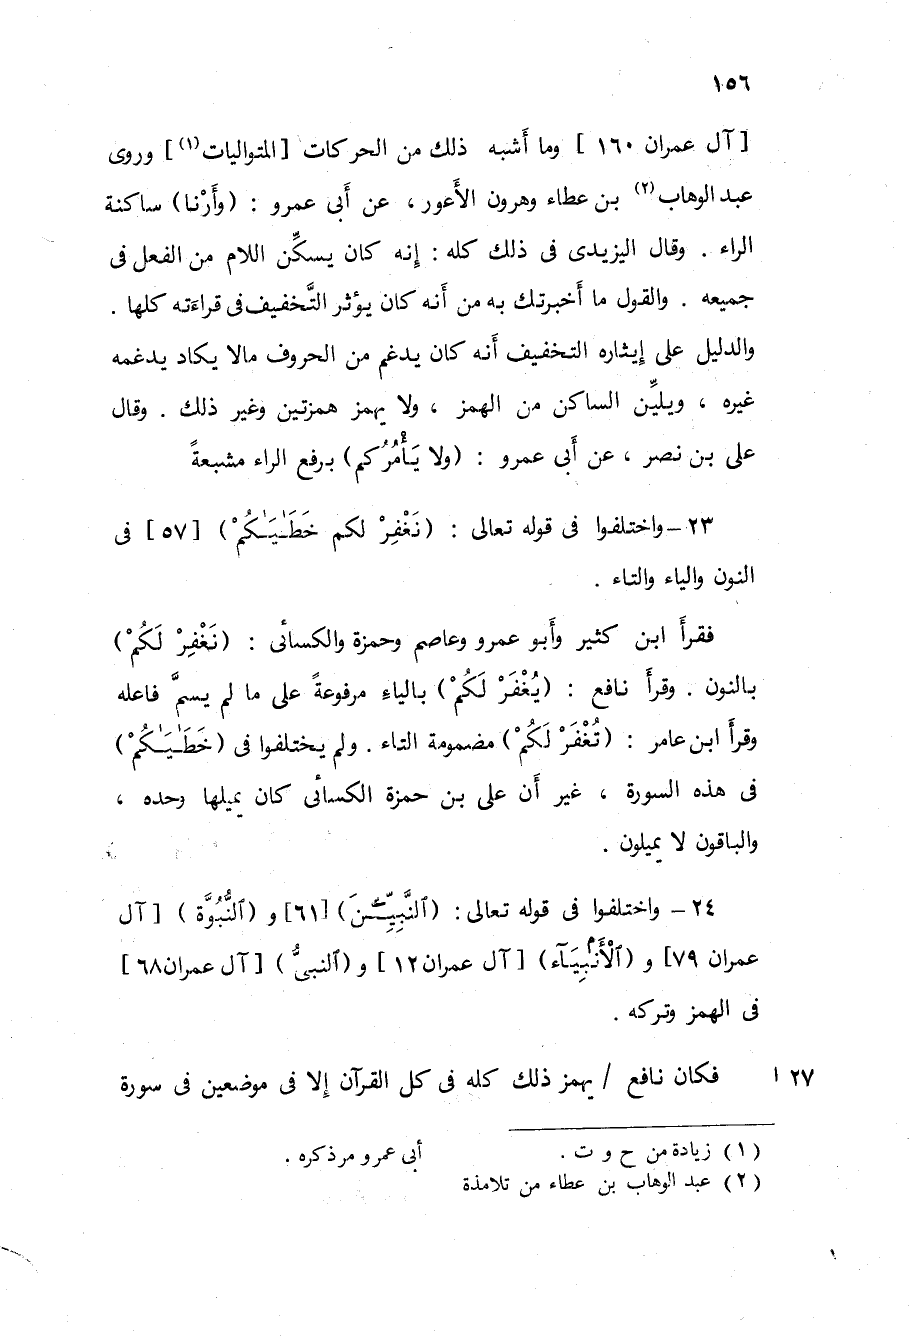 ١٥٦
[ آل عمران ١٦٠ ] وما أشبه ذلك من الحركات [ المتواليات (١) ] وروى
عبد الوهاب (٢) بن عطاء وهرون الأعور ، عن أبى عمرو : ( وأَرْنا ) ساكنة
الراء . وقال اليزيدى فى ذلك كله : إنه كان يسكِّن اللام من الفعل فى
جميعه . والقول ما أخبرتك به من أنه كان يؤثر التَّخفيف فى قراءته كلها .
والدليل على إيثاره التخفيف أنه كان يدغم من الحروف مالا يكاد يدغمه
غيره ، ويليِّن الساكن من الهمز ، ولا يهمز همزتين وغير ذلك . وقال
على بن نصر ، عن أبى عمرو : ( ولا يَأْمُرُكم ) برفع الراء مشبعةً
٢٣ – واختلفوا فى قوله تعالى : ( نَغْفِرْ لكم خَطَـٰيَـٰكُمْ ) [ ٥٧ ] فى
النون والياء والتاء .
فقرأ ابن كثير وأبو عمرو وعاصم وحمزة والكسائى : ( نَغْفِرْ لَكُمْ )
بالنون . وقرأ نافع : ( يُغْفَرْ لَكُمْ ) بالياء مرفوعةً على ما لم يسمَّ فاعله
وقرأ ابن عامر : ( تُغْفَرْ لَكُمْ ) مضمومة التاء . ولم يختلفوا فى ( خَطَـٰيَـٰكُمْ )
فى هذه السورة ، غير أن على بن حمزة الكسائى كان يميلها وحده ،
والباقون لا يميلون .
٢٤ – واختلفوا فى قوله تعالى : ( ٱلنَّبِيِّـۧنَ ) [٦١] و ( ٱلنُّبُوَّة ) [ آل
عمران ٧٩] و ( ٱلْأَنۢبِيَآء ) [ آل عمران ١٢ ] و ( ٱلنبىُّ ) [ آل عمران ٦٨ ]
فى الهمز وتركه .
٢٧ ا فكان نافع / يهمز ذلك كله فى كل القرآن إلا فى موضعين فى سورة
( ١ ) زيادة من ح و ت .
( ٢ ) عبد الوهاب بن عطاء من تلامذة
أبى عمرو مر ذكره .